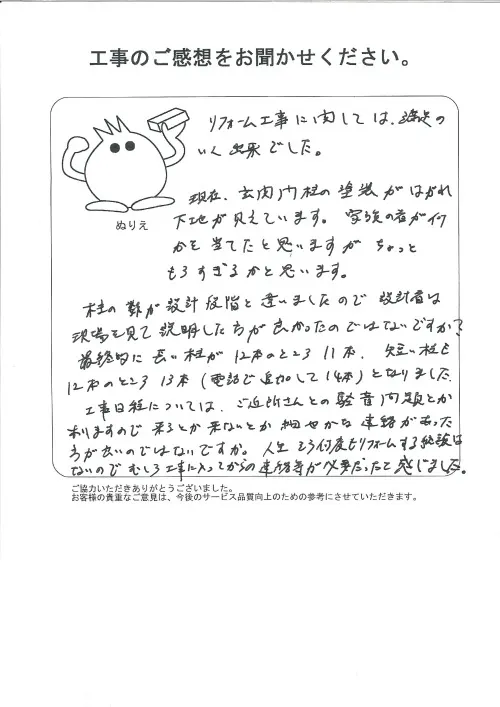 工事のご感想をお聞かせください。
リフォーム工事に関しては、満足の
いく出来でした。
ぬりえ
現在、玄関門柱の塗装がはがれ
下地が見えています。家族の者が何
かを当てたと思いますが ちょっと
もろすぎるかと思います。
柱の数が設計段階と違いましたので 設計者は
現場を見て説明した方が良かったのではないですか?
最終的に長い柱が12本のところ11本、短い柱も
12本のところ13本(電話で追加して14本)となりました
工事日程については、ご近所さんとの騒音問題とか
有りますので 来るとか来ないとか 細やかな連絡があった
方が良いのではないですか。人生そう何度もリフォームする経験は
ないので むしろ工事に入ってからの連絡等が必要だったと感じました。
ご協力いただきありがとうございました。
お客様の貴重なご意見は、今後のサービス品質向上のための参考にさせていただきます。